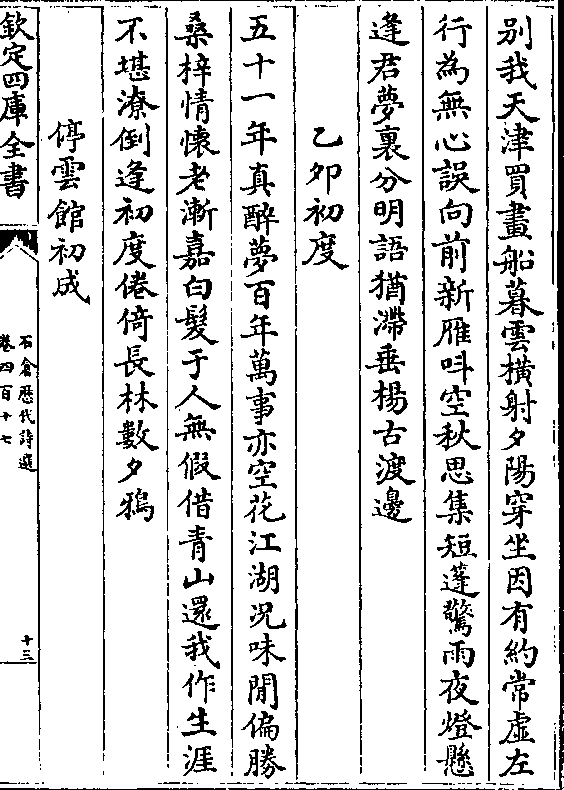 别我天津買畫船暮雲横射夕陽穿坐因有約常虛左
行為無心誤向前新雁叫空秋思集短蓬驚雨夜燈懸
逢君夢裏分明語猶滯垂楊古渡邊
乙夘初度
五十一年真醉夢百年萬事亦空花江湖况味閒偏勝
桑梓情懷老漸嘉白髮于人無假借青山還我作生涯
不堪潦倒逢初度倦倚長林數夕鴉
停雲館初成
欽定四庫全書
石倉歷代詩選
卷四百十七
十三